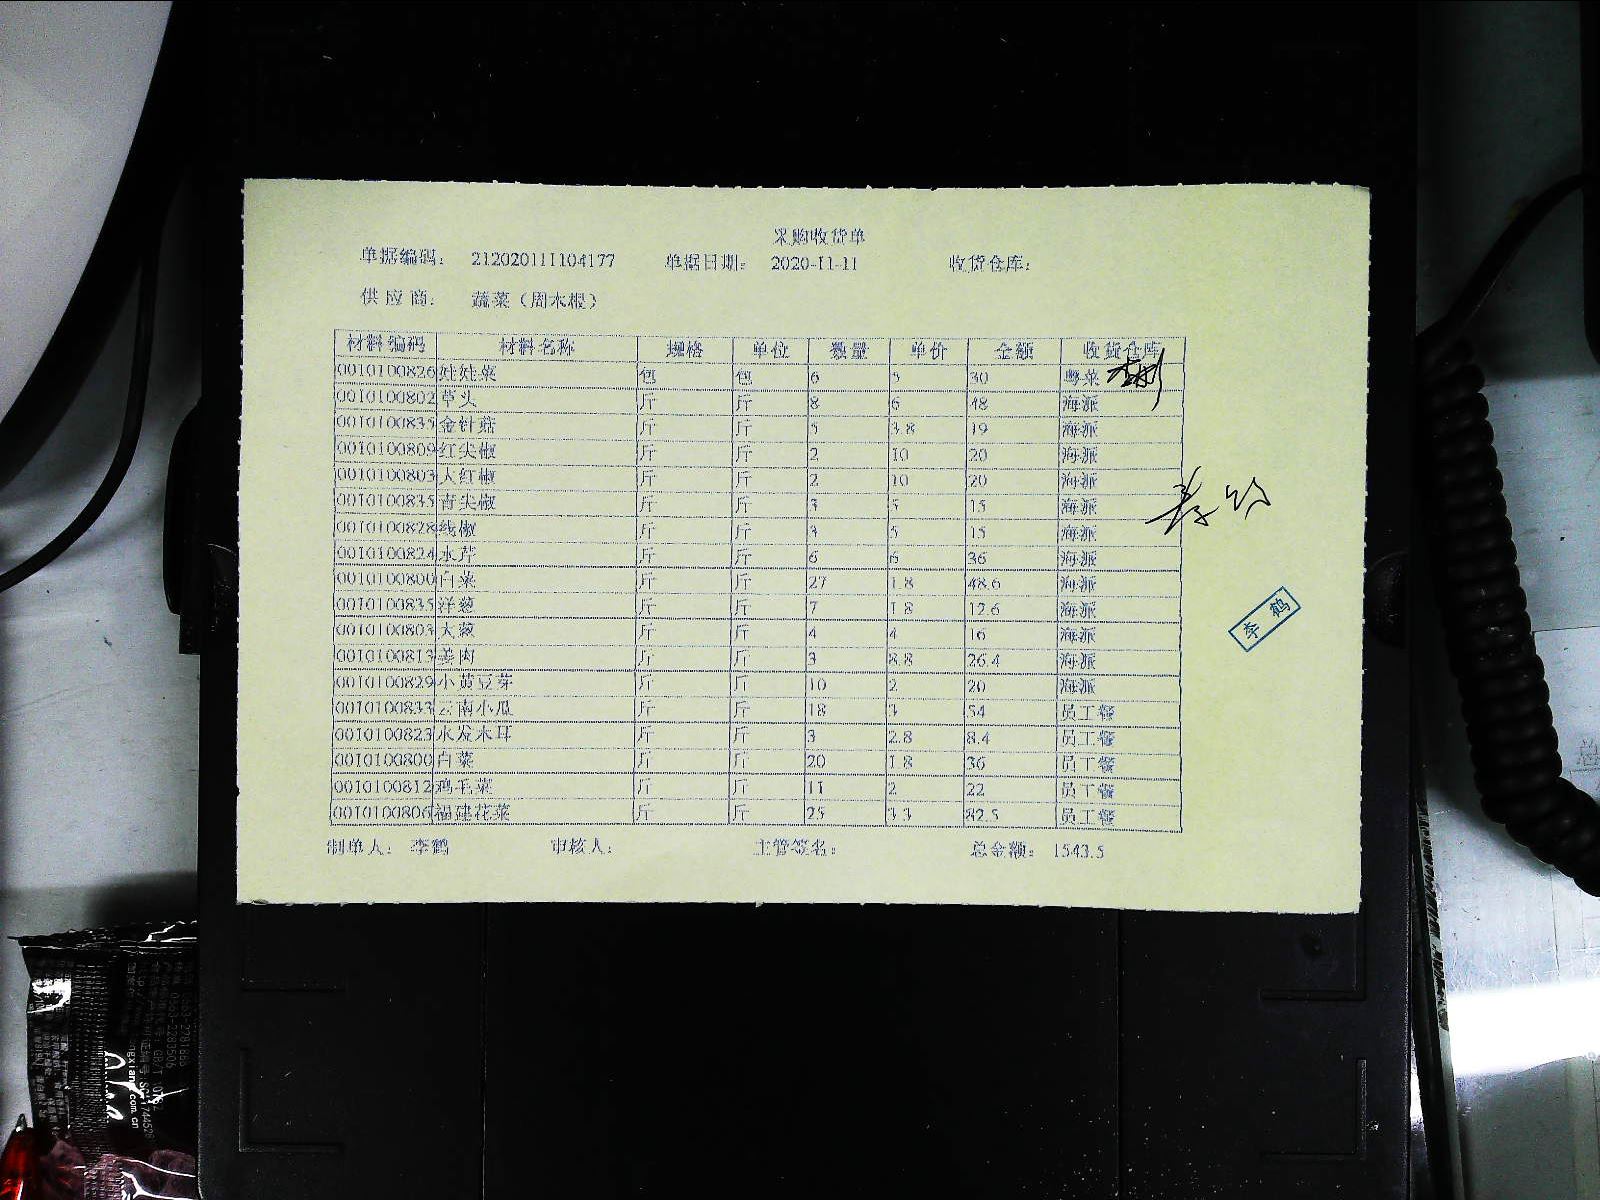 采购收货单
单据编码： 212020111104177 单据日期： 2020-11-11 收货仓库：
供应商： 蔬菜（周木根）
材料编码 材料名称 规格 单位 数量 单价 金额 收货仓库
0010100826 娃娃菜 包 包 6 5 30 粤菜
0010100802 草头 斤 斤 8 6 48 海派
0010100835 金针菇 斤 斤 5 3.8 19 海派
0010100809 红尖椒 斤 斤 2 10 20 海派
0010100803 大红椒 斤 斤 2 10 20 海派
0010100835 青尖椒 斤 斤 3 5 15 海派
0010100828 线椒 斤 斤 3 5 15 海派
0010100824 水芹 斤 斤 6 6 36 海派
0010100800 白菜 斤 斤 27 1.8 48.6 海派
0010100835 洋葱 斤 斤 7 1.8 12.6 海派
0010100803 大葱 斤 斤 4 4 16 海派
0010100813 姜肉 斤 斤 3 8.8 26.4 海派
0010100829 小黄豆芽 斤 斤 10 2 20 海派
0010100833 云南小瓜 斤 斤 18 3 54 员工餐
0010100823 水发木耳 斤 斤 3 2.8 8.4 员工餐
0010100800 白菜 斤 斤 20 1.8 36 员工餐
0010100812 鸡毛菜 斤 斤 11 2 22 员工餐
0010100806 福建花菜 斤 斤 25 3.3 82.5 员工餐
制单人： 李鹤 审核人： 主管签名： 总金额： 1543.5
李鹤